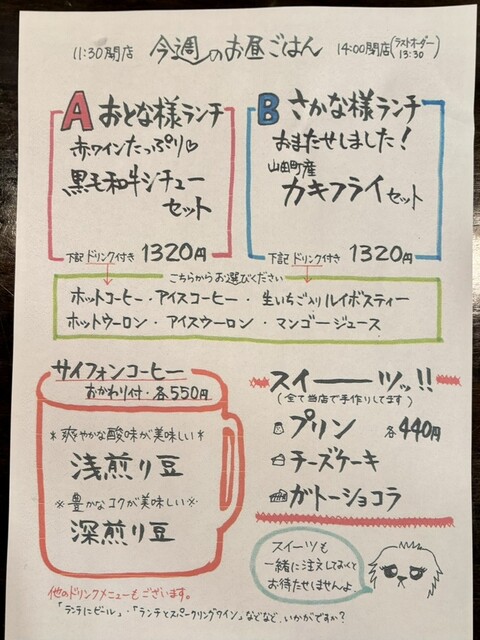 11:30開店 今週のお昼ごはん 14:00閉店(ラストオーダー13:30)
A おとな様ランチ
赤ワインたっぷり♡
黒毛和牛シチュー
セット
下記ドリンク付き 1320円
B さかな様ランチ
おまたせしました!
山田町産
カキフライセット
下記ドリンク付き 1320円
こちらからお選びください
ホットコーヒー・アイスコーヒー・生いちご入りルイボスティー
ホットウーロン・アイスウーロン・マンゴージュース
サイフォンコーヒー
おかわり付・各550円
*爽やかな酸味が美味しい*
浅煎り豆
※豊かなコクが美味しい※
深煎り豆
スイーーツッ!!
(全て当店で手作りしてます)
プリン 各440円
チーズケーキ
ガトーショコラ
スイーツも
一緒に注文しておくと
お待たせしませんよ
他のドリンクメニューもございます。
「ランチにビール」・「ランチとスパークリングワイン」などなど、いかがですか?